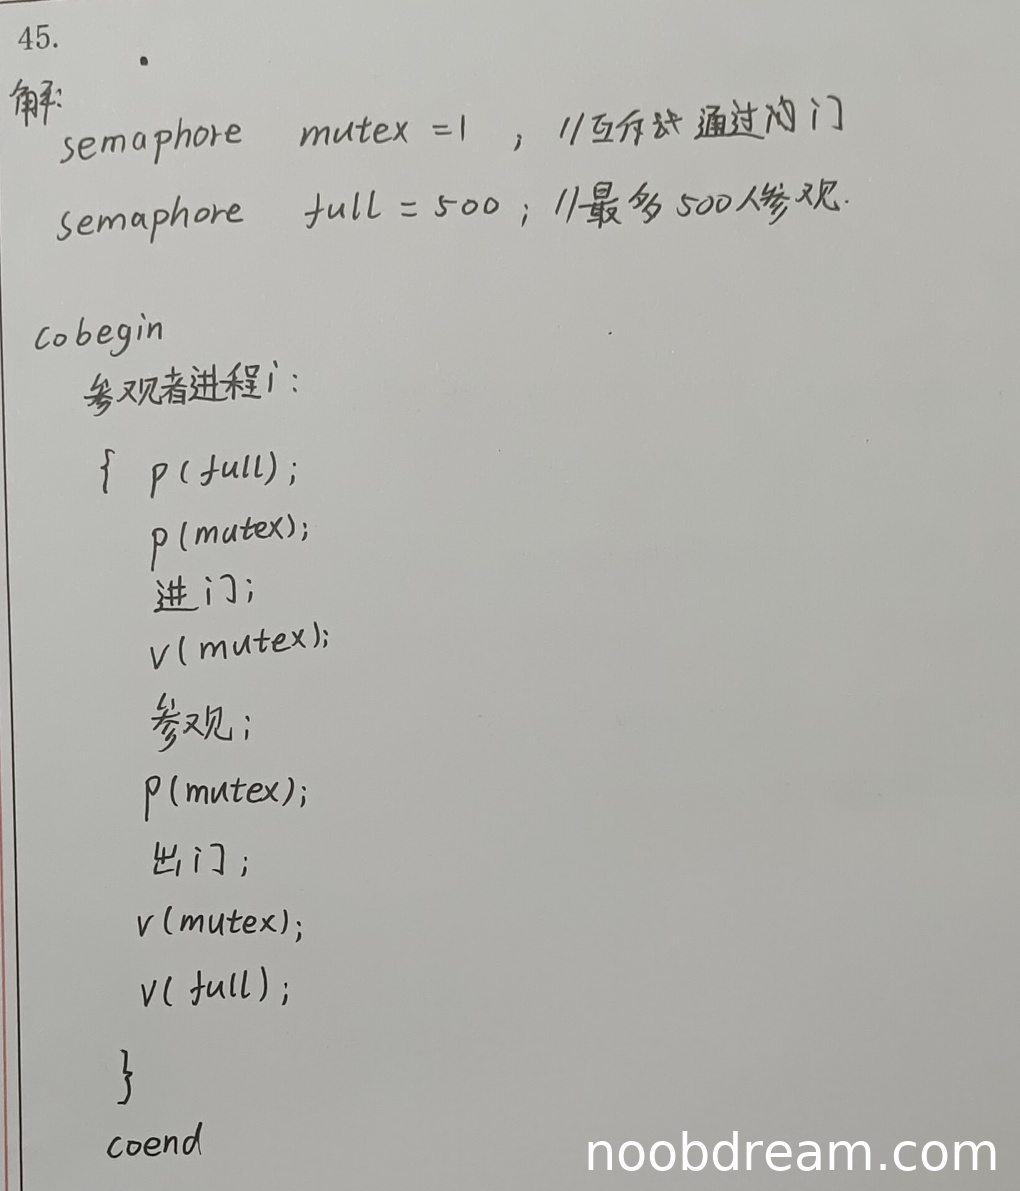 45.
解:
semaphore mutex =1 ; //互斥 通过 门
semaphore full = 500 ; //最多500人参观.
cobegin
参观者进程i:
{ p(full);
p(mutex);
进门;
v(mutex);
参观;
p(mutex);
出门;
v(mutex);
v(full);
}
coend
noobdream.com